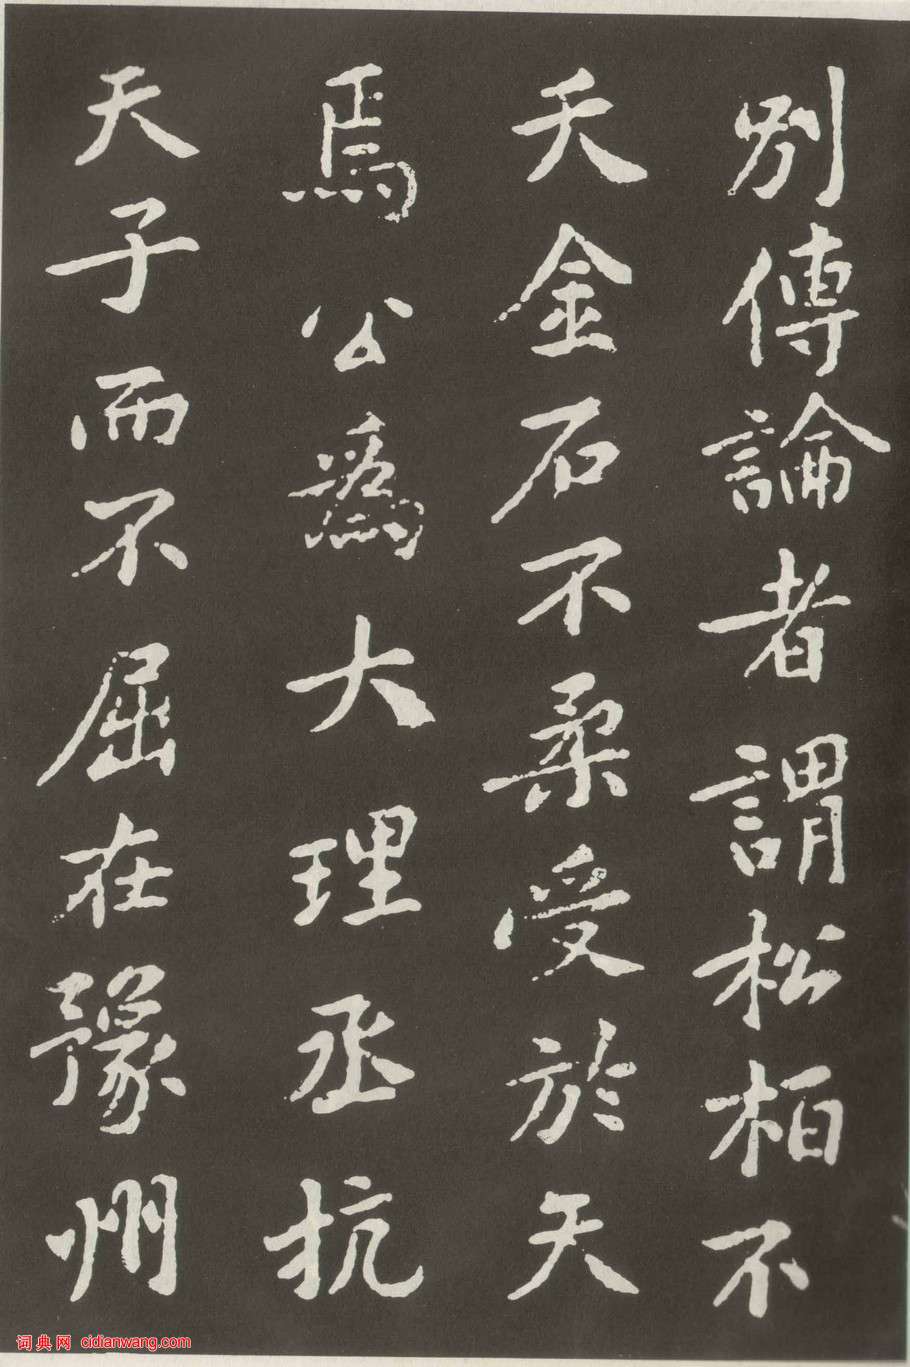 別傳論者謂松柏不
夭金石不柔受於天
焉公為大理丞抗
天子而不屈在豫州
词典网 cidianwang.com